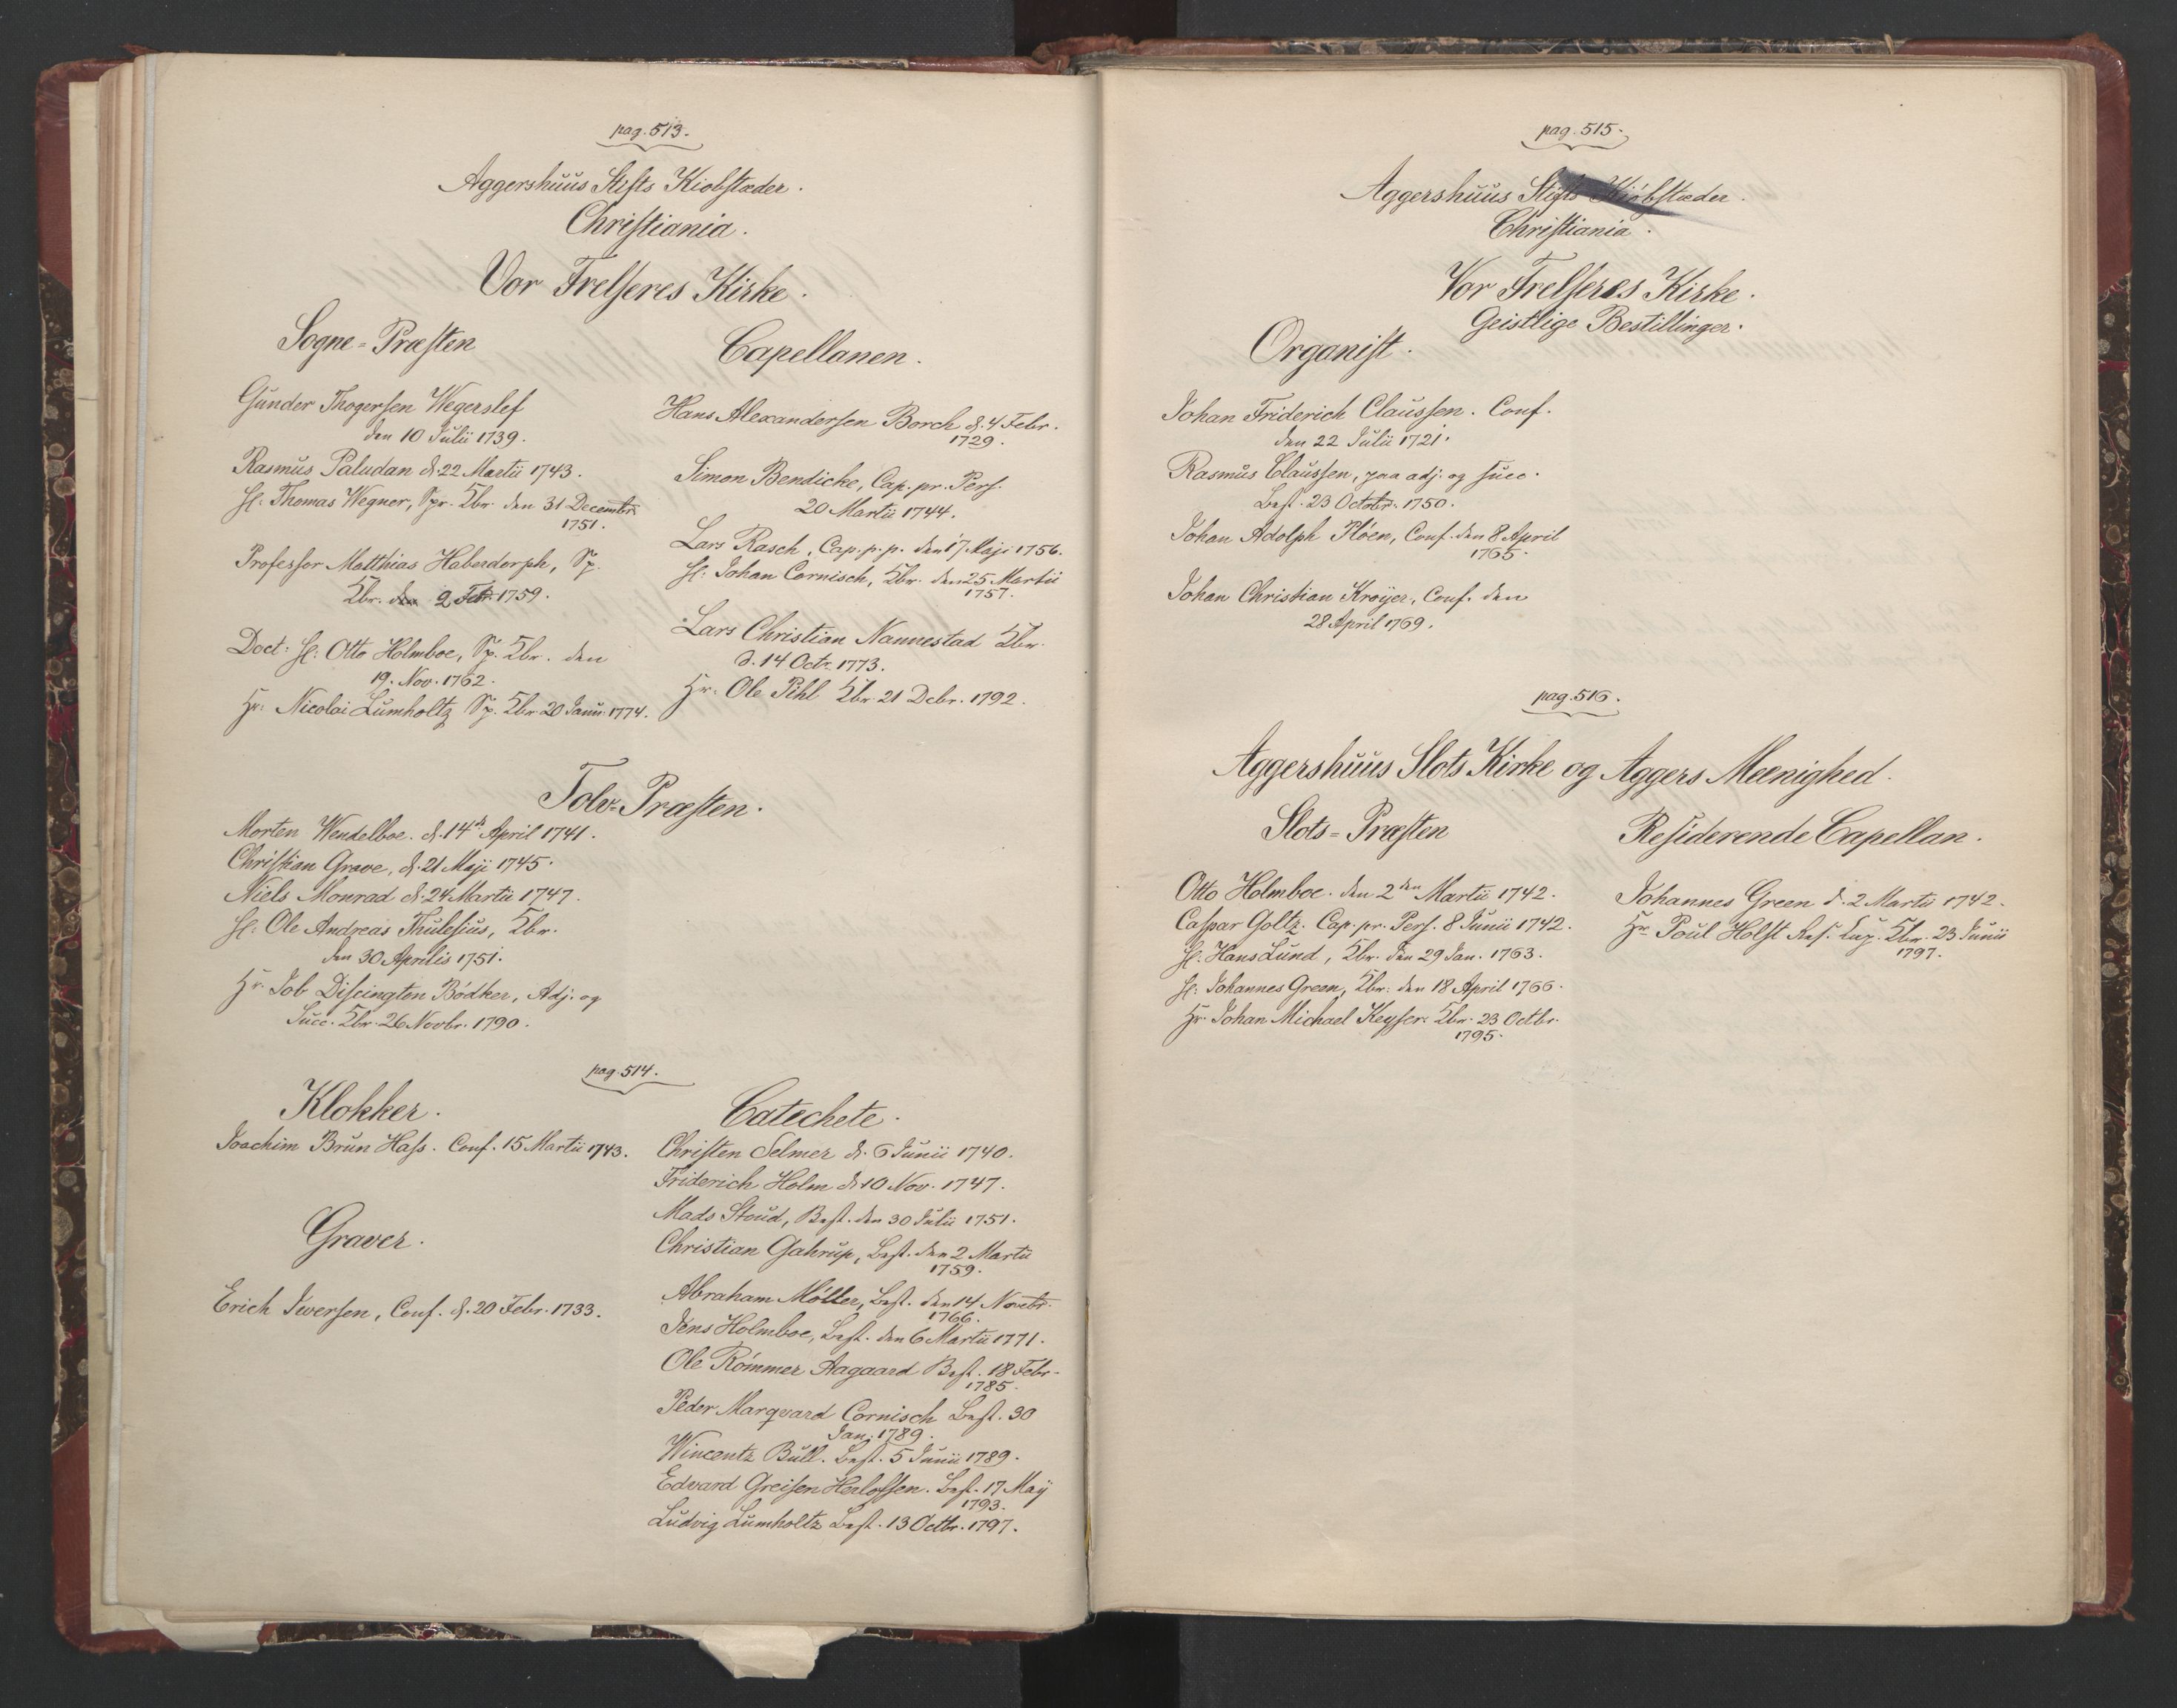 pag. 513.
Aggershuus Stifts Kiobstæder.
Christiania.
Vor Frelseres Kirke.
Sogne-Præsten
Gunder Thogersen Wegerslef
den 10 Julii 1739.
Rasmus Paludan d. 22 Martii 1743.
Hr: Thomas Wegner, Spr. Kbr. den 31 Decembr.
1751.
Professor Matthias Haberdorph, Sp.
Kbr. den 2 Febr. 1759.
Doct: Hr: Otto Holmboe, Sp. Kbr. den
19. Nov. 1762.
Hr: Nicolai Lumholtz Sp. Kbr. 20 Janu: 1774.
Capellanen.
Hans Alexandersen Borch d. 4 Febr.
1729.
Simon Bendicke, Cap. pr. Pers.
20 Martii 1744.
Lars Rasch, Cap. p. p. den 17 Maji 1756.
Hr: Johan Cornisch, Kbr. den 25 Martii
1757.
Lars Christian Nannestad Kbr.
d. 14 Octr. 1773.
Hr. Ole Pihl Kbr. 21 Debr. 1792.
Tolv-Præsten.
Morten Wendelboe. d. 14de April 1741.
Christian Grave, d. 21 Maji 1745.
Niels Monrad d. 24 Martii 1747.
Hr: Ole Andreas Thulesius, Kbr.
den 30 Aprilis 1751.
Hr. Job Discington Bödker, Adj. og
Succ. Kbr. 26 Novbr. 1790.
pag. 514.
Klokker.
Joachim Brun Hass. Conf. 15 Martii 1743.
Graver.
Erich Iversen, Conf. d. 20 Febr. 1733.
Catechete.
Christen Selmer d. 6 Junii 1740.
Friderich Holm d. 10 Nov. 1747.
Mads Stoud, Best. den 30 Julii 1751.
Christian Gahrup, Best. den 2 Martii
1759.
Abraham Möller, Best. den 14 Novebr.
1766.
Jens Holmboe, Best. den 6 Martii 1771.
Ole Römmer Aagaard Best. 18 Febr.
1785.
Peder Marqvard Cornisch Best. 30
Jan: 1789.
Wincentz Bull. Best. 5 Junii 1789.
Edvard Greisen Herlofssen. Best. 17 Maij
1793.
Ludvig Lumholtz Best. 13 Octbr. 1797.
pag. 515.
Aggershuus Stifts Kiöbstæder.
Christiania.
Vor Frelseres Kirke.
Geistlige Bestillinger.
Organist.
Johan Friderich Claussen. Conf.
den 22 Julii 1721.
Rasmus Claussen, paa adj. og succ.
Best. 23 Octobr. 1750.
Johan Adolph Plöen, Conf. den 8 April
1765.
Johan Christian Kroÿer, Conf. den
28 April 1769.
pag. 516.
Aggershuus Slots Kirke og Aggers Meenighed.
Slots-Præsten
Otto Holmboe. den 2den Martii 1742.
Caspar Goltz. Cap. pr. Pers. 8 Junii 1742.
Hr: Hans Lund, Kbr. den 29 Jan. 1763.
Hr: Johannes Green, Kbr: den 18 April 1766.
Hr. Johan Michael Keyser. Kbr. 23 Octbr.
1795.
Residerende Capellan.
Johannes Green d. 2 Martii 1742.
Hr. Poul Holst Res. Cap. Kbr. 23 Junii
1797.